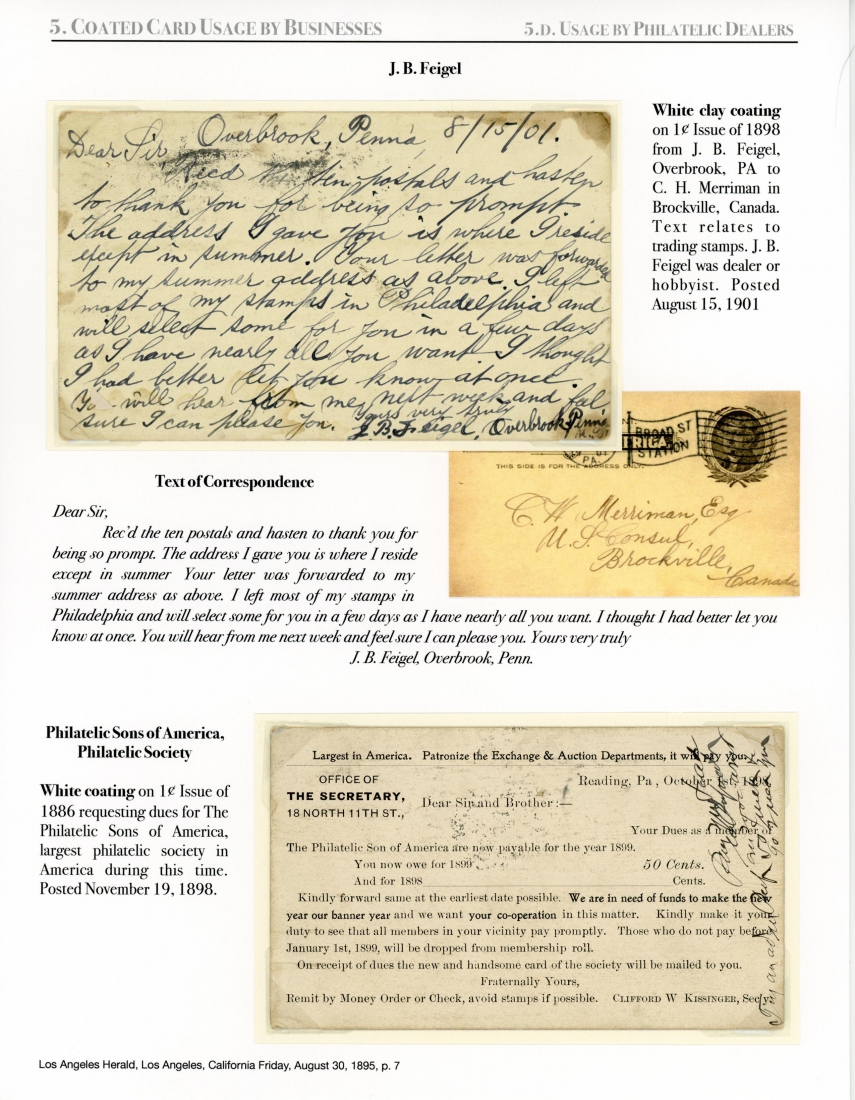 5. COATED CARD USAGE BY BUSINESSES
5.D. USAGE BY PHILATELIC DEALERS
J. B. Feigel
Dear Sir Overbrook, Penn'a, 8/15/01.
Rec'd the ten postals and hasten
to thank you for being so prompt.
The address I gave you is where I reside
except in summer. Your letter was forwarded
to my summer address as above. I left
most of my stamps in Philadelphia and
will select some for you in a few days
as I have nearly all you want. I thought
I had better let you know at once.
You will hear from me next week and feel
sure I can please you. Yours very truly
J. B. Feigel, Overbrook, Penn'a
White clay coating
on 1¢ Issue of 1898
from J. B. Feigel,
Overbrook, PA to
C. H. Merriman in
Brockville, Canada.
Text relates to
trading stamps. J. B.
Feigel was dealer or
hobbyist. Posted
August 15, 1901
BROAD ST
STATION
PA.
THIS SIDE IS FOR THE ADDRESS ONLY.
C. H. Merriman, Esq
U. S. Consul,
Brockville,
Canada
Text of Correspondence
Dear Sir,
Rec'd the ten postals and hasten to thank you for
being so prompt. The address I gave you is where I reside
except in summer Your letter was forwarded to my
summer address as above. I left most of my stamps in
Philadelphia and will select some for you in a few days as I have nearly all you want. I thought I had better let you
know at once. You will hear from me next week and feel sure I can please you. Yours very truly
J. B. Feigel, Overbrook, Penn.
Philatelic Sons of America,
Philatelic Society
White coating on 1¢ Issue of
1886 requesting dues for The
Philatelic Sons of America,
largest philatelic society in
America during this time.
Posted November 19, 1898.
Largest in America. Patronize the Exchange & Auction Departments, it will pay you.
OFFICE OF
THE SECRETARY,
18 NORTH 11TH ST.,
Reading, Pa., October
Dear Sir and Brother:—
Your Dues as a member of
The Philatelic Son of America are now payable for the year 1899.
You now owe for 1899 50 Cents.
And for 1898 Cents.
Kindly forward same at the earliest date possible. We are in need of funds to make the new
year our banner year and we want your co-operation in this matter. Kindly make it your
duty to see that all members in your vicinity pay promptly. Those who do not pay before
January 1st, 1899, will be dropped from membership roll.
On receipt of dues the new and handsome card of the society will be mailed to you.
Fraternally Yours,
Remit by Money Order or Check, avoid stamps if possible. CLIFFORD W KISSINGER, Sec'y.
Los Angeles Herald, Los Angeles, California Friday, August 30, 1895, p. 7